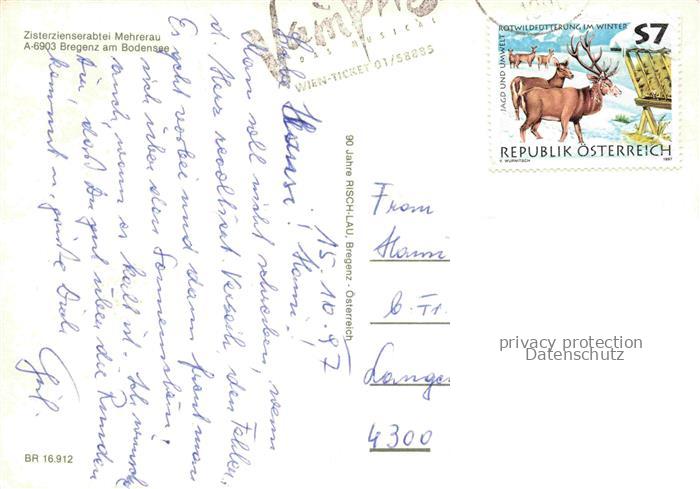 Zisterzienserabtei Mehrerau
A-6903 Bregenz am Bodensee
DAS MUSICAL
WIEN-TICKET 01/58885
ROTWILDFÜTTERUNG IM WINTER
S7
JAGD UND UMWELT
REPUBLIK ÖSTERREICH
1997
15.10.97
Liebe Hansi!
Man soll nicht schreiben, wenn
d. Herz rebelliert. Verzeih den Fehler,
Es geht vorbei und dann freut man
sich über den Sonnenschein,
auch, wenn er kalt ist. Ich wünsche
Dir, daß Du gut über die Runden
kommst u. grüße Dich
90 Jahre RISCH-LAU, Bregenz - Österreich
Frau
4300
privacy protection
Datenschutz
BR 16.912